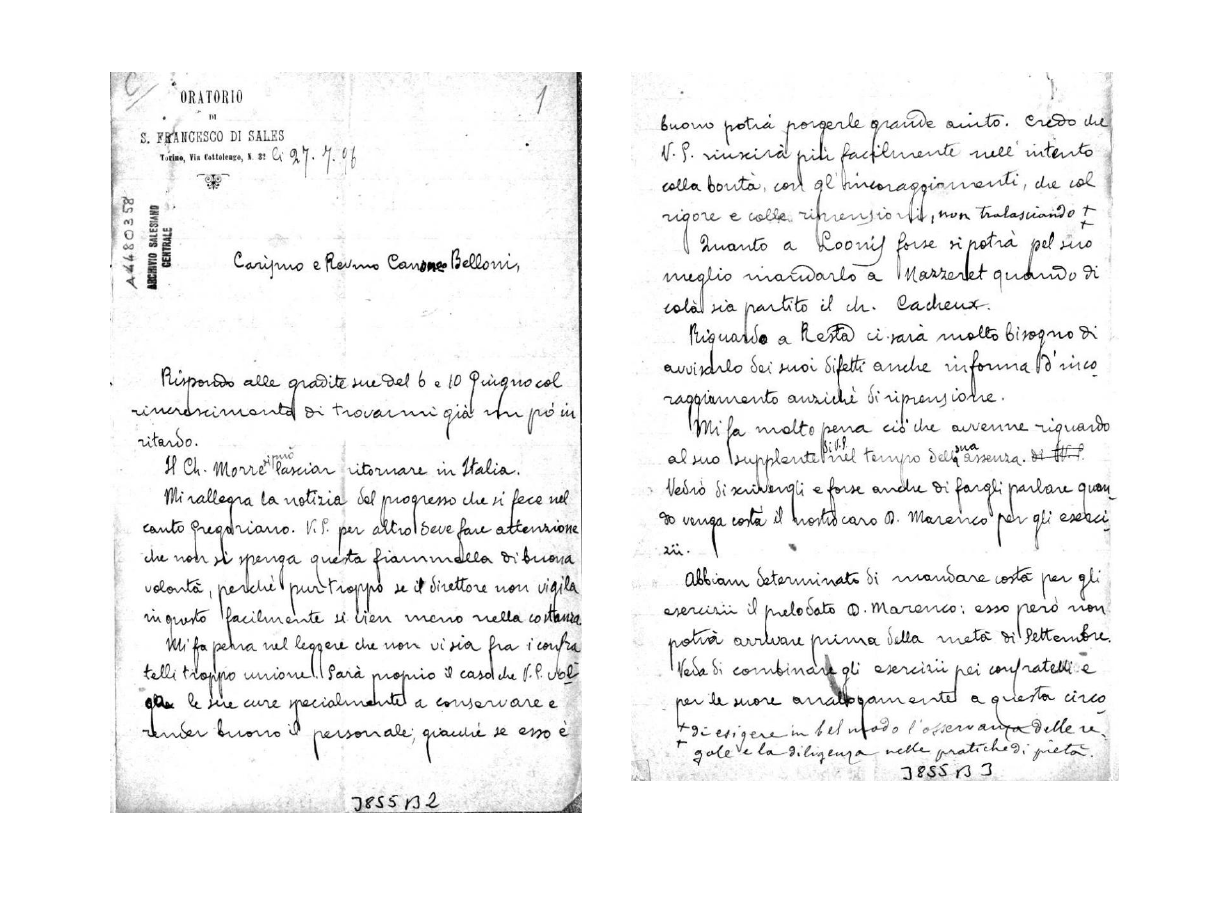 C
1
ORATORIO
DI
S. FRANCESCO DI SALES
Torino, Via Cottolengo, N. 32 li 27. 7. 96
A4480358
ARCHIVIO SALESIANO
CENTRALE
Carissmo e Revmo Canonico Belloni,
Rispondo alle gradite sue del 6 e 10 Giugno col
rincrescimento di trovarmi già un pó in
ritardo.
Il Ch. Morrè si può lasciar ritornare in Italia.
Mi rallegra la notizia del progresso che si fece nel
canto gregoriano. V.S. per altro deve fare attenzione
che non si spenga questa fiammella di buona
volontà, perchè pur troppo se il direttore non vigila
in questo facilmente si vien meno nella costanza
Mi fa pena nel leggere che non vi sia fra i confra
telli troppo unione. Sarà proprio il caso che V.S. vol-
ga le sue cure specialmente a conservare e
render buono il personale, giacchè se esso è
J855 B 2
buono potrà porgerle grande aiuto. Credo che
V.S. riuscirà più facilmente nell'intento
colla bontà, con gl'incoraggiamenti, che col
rigore e colle riprensioni, non tralasciando ++
Quanto a Loonis forse si potrà pel suo
meglio mandarlo a Nazzeret quando di
colà sia partito il ch. Cacheux.
Riguardo a Resta ci sarà molto bisogno di
avvisarlo dei suoi difetti anche in forma d'inco
raggiamento anzichè di riprensione.
Mi fa molto pena ciò che avvenne riguardo
al suo supplente di V.S. nel tempo della sua assenza. di V.S.
Vedrò di scrivergli e forse anche di fargli parlare quan-
do venga costà il nostro caro D. Marenco per gli eserci-
zii.
Abbiam determinato di mandare costà per gli
esercizii il prelodato D. Marenco: esso però non
potrà arrivare prima della metà di Settembre.
Veda di combinare gli esercizii pei confratelli e
per le suore analogamente a questa circo
++ di esigere in bel modo l'osservanza delle re-
gole e la diligenza nelle pratiche di pietà.
J855 B 3